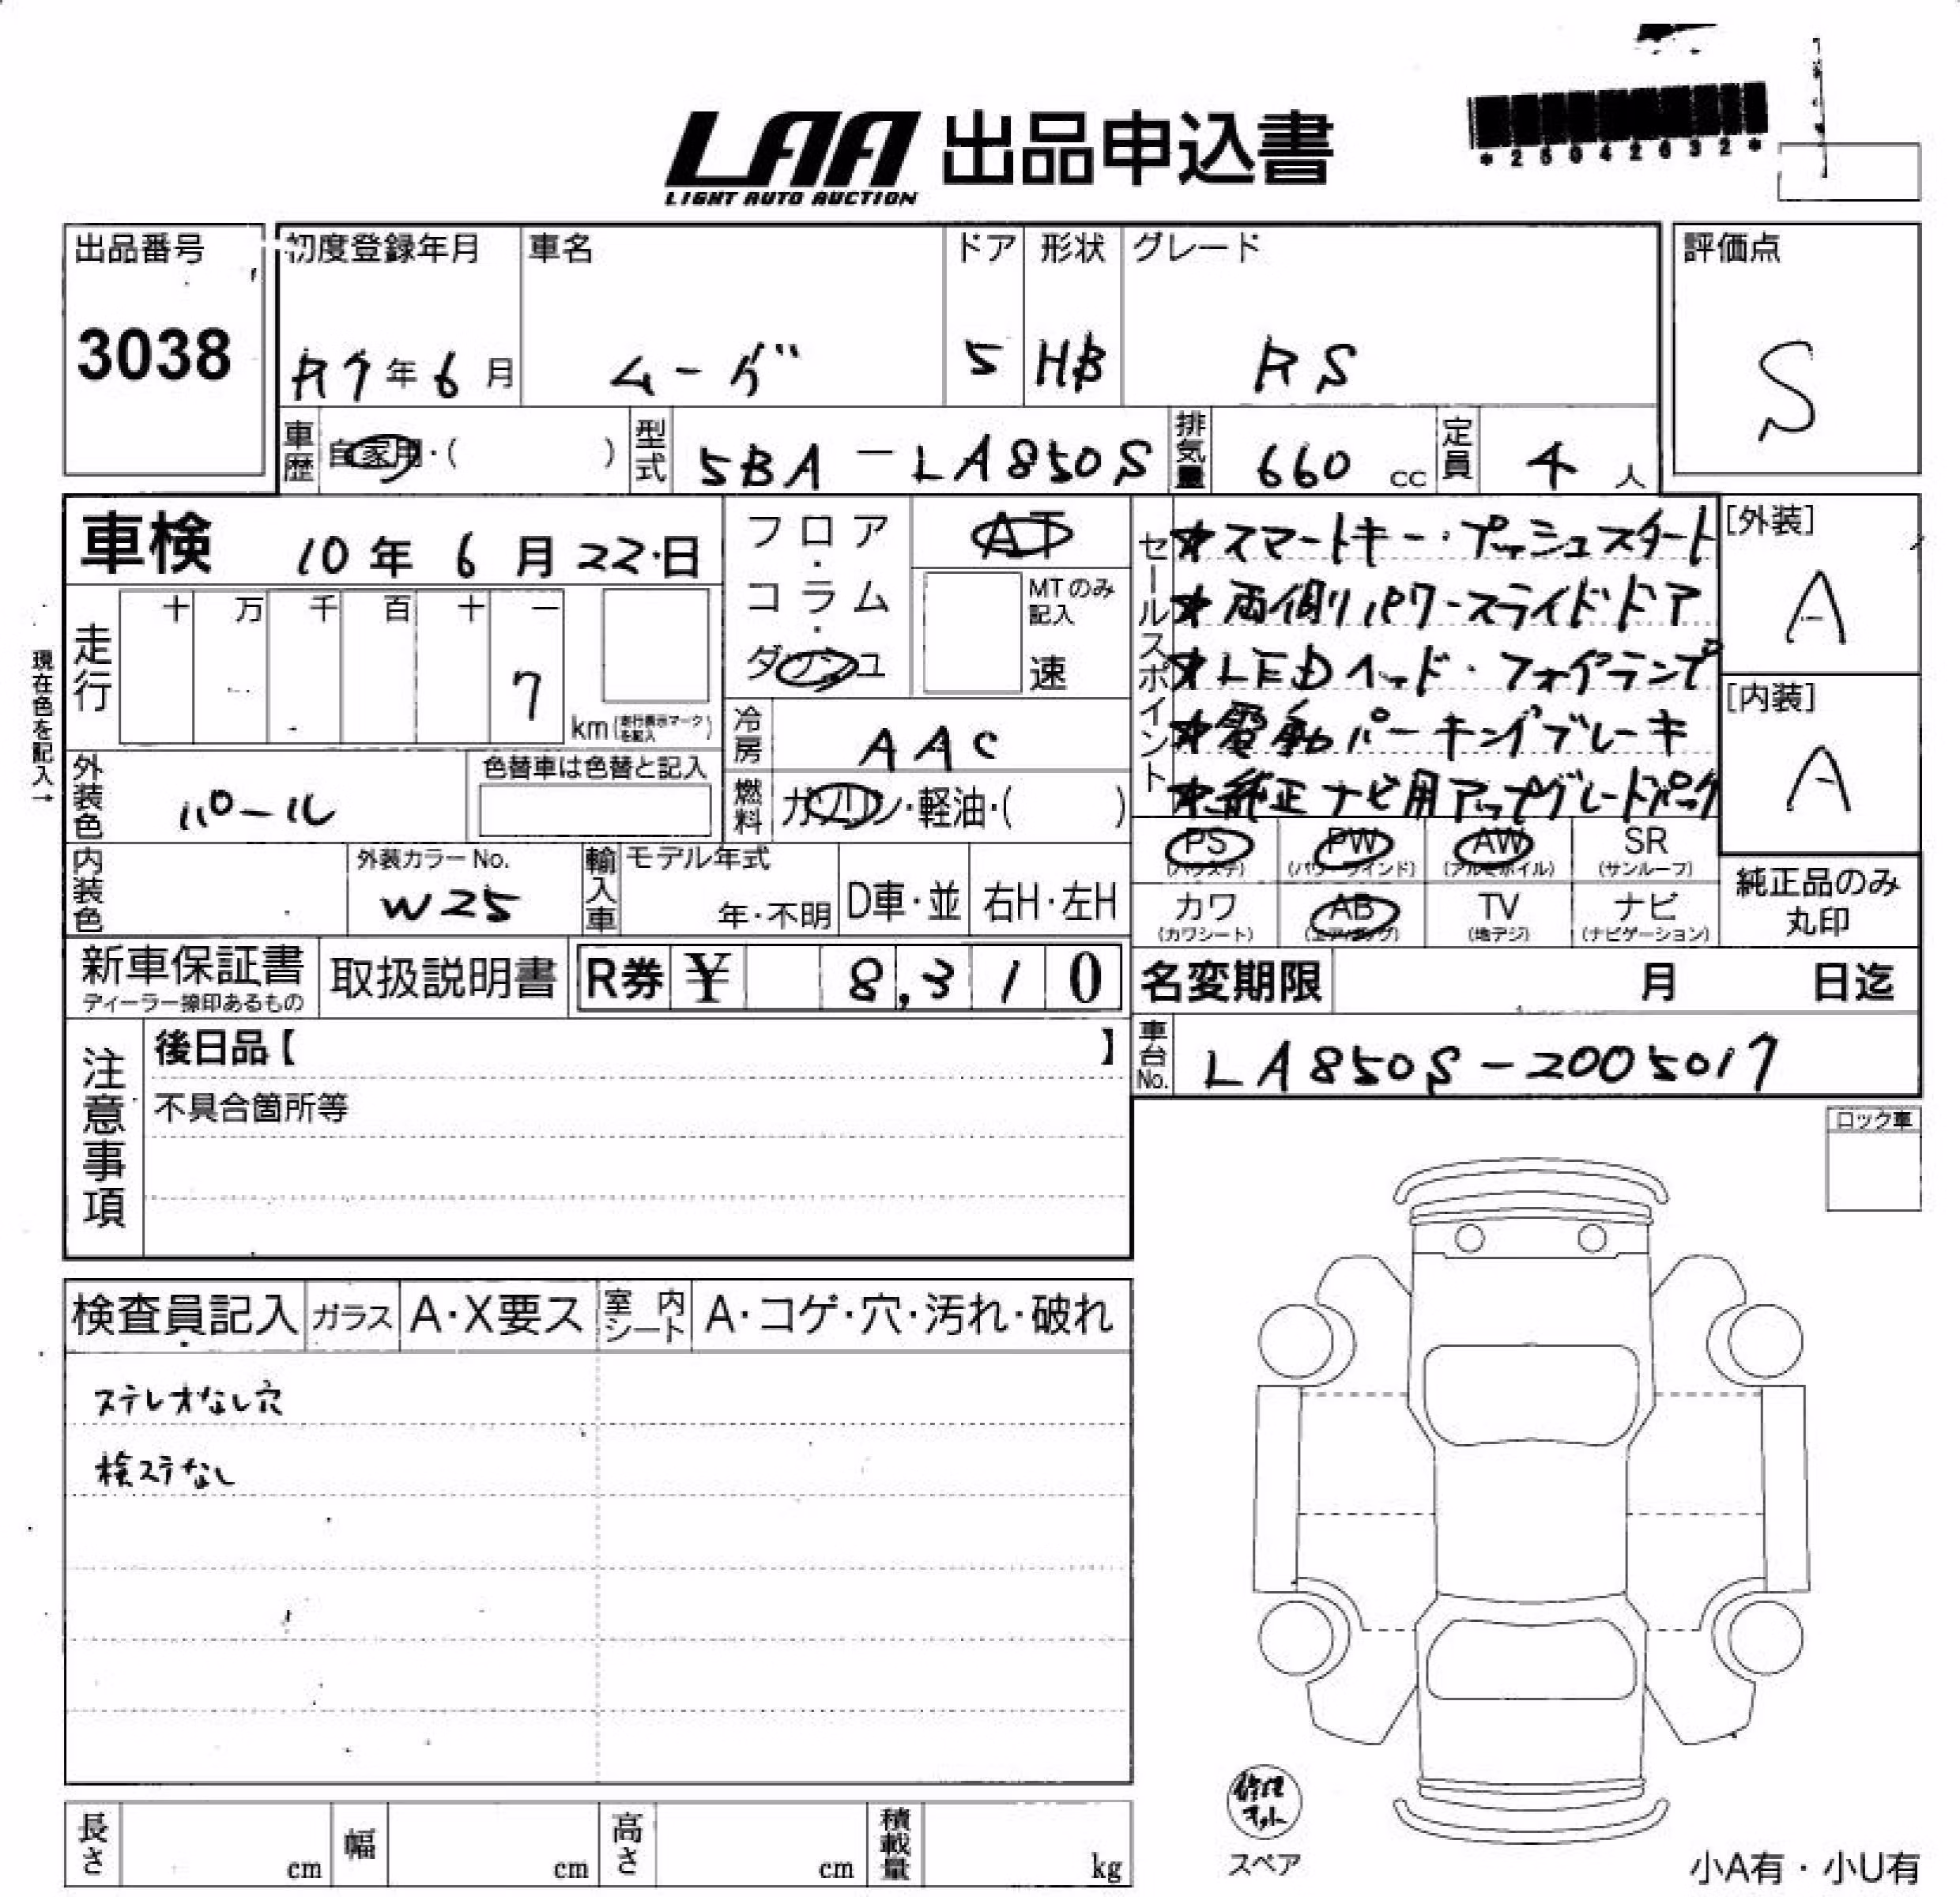 LAA 出品申込書
LIGHT AUTO AUCTION
*25042632*
出品番号
3038
初度登録年月
R7年6月
車名
ムーヴ
ドア
5
形状
HB
グレード
RS
評価点
S
車歴
自家用・( )
型式
5BA-LA850S
排気量
660 cc
定員
4人
車検 10年6月22日
フロア・コラム・ダッシュ
AT
MTのみ記入
速
セールスポイント
★スマートキー・プッシュスタート
★両側パワースライドドア
★LEDヘッド・フォグランプ
★電動パーキングブレーキ
★純正ナビ用アップグレードパック
[外装]
A
[内装]
A
現在色を記入→
走行
十 万 千 百 十 一
7
km(走行表示マークを記入)
冷房
AAC
外装色
パール
色替車は色替と記入
燃料
ガソリン・軽油・( )
PS
(パワステ)
PW
(パワーウインド)
AW
(アルミホイル)
SR
(サンルーフ)
カワ
(カワシート)
AB
(エアバッグ)
TV
(地デジ)
ナビ
(ナビゲーション)
純正品のみ
丸印
内装色
外装カラーNo.
W25
輸入車
モデル年式
年・不明
D車・並
右H・左H
新車保証書
ディーラー捺印あるもの
取扱説明書
R券 ¥ 8,310
名変期限 月 日迄
車台No.
LA850S-2005017
注意事項
後日品【 】
不具合箇所等
ロック車
検査員記入
ガラス
A・X要ス
室内シート
A・コゲ・穴・汚れ・破れ
ステレオなし穴
検ステなし
長さ cm
幅 cm
高さ cm
積載量 kg
修理キット
スペア
小A有・小U有